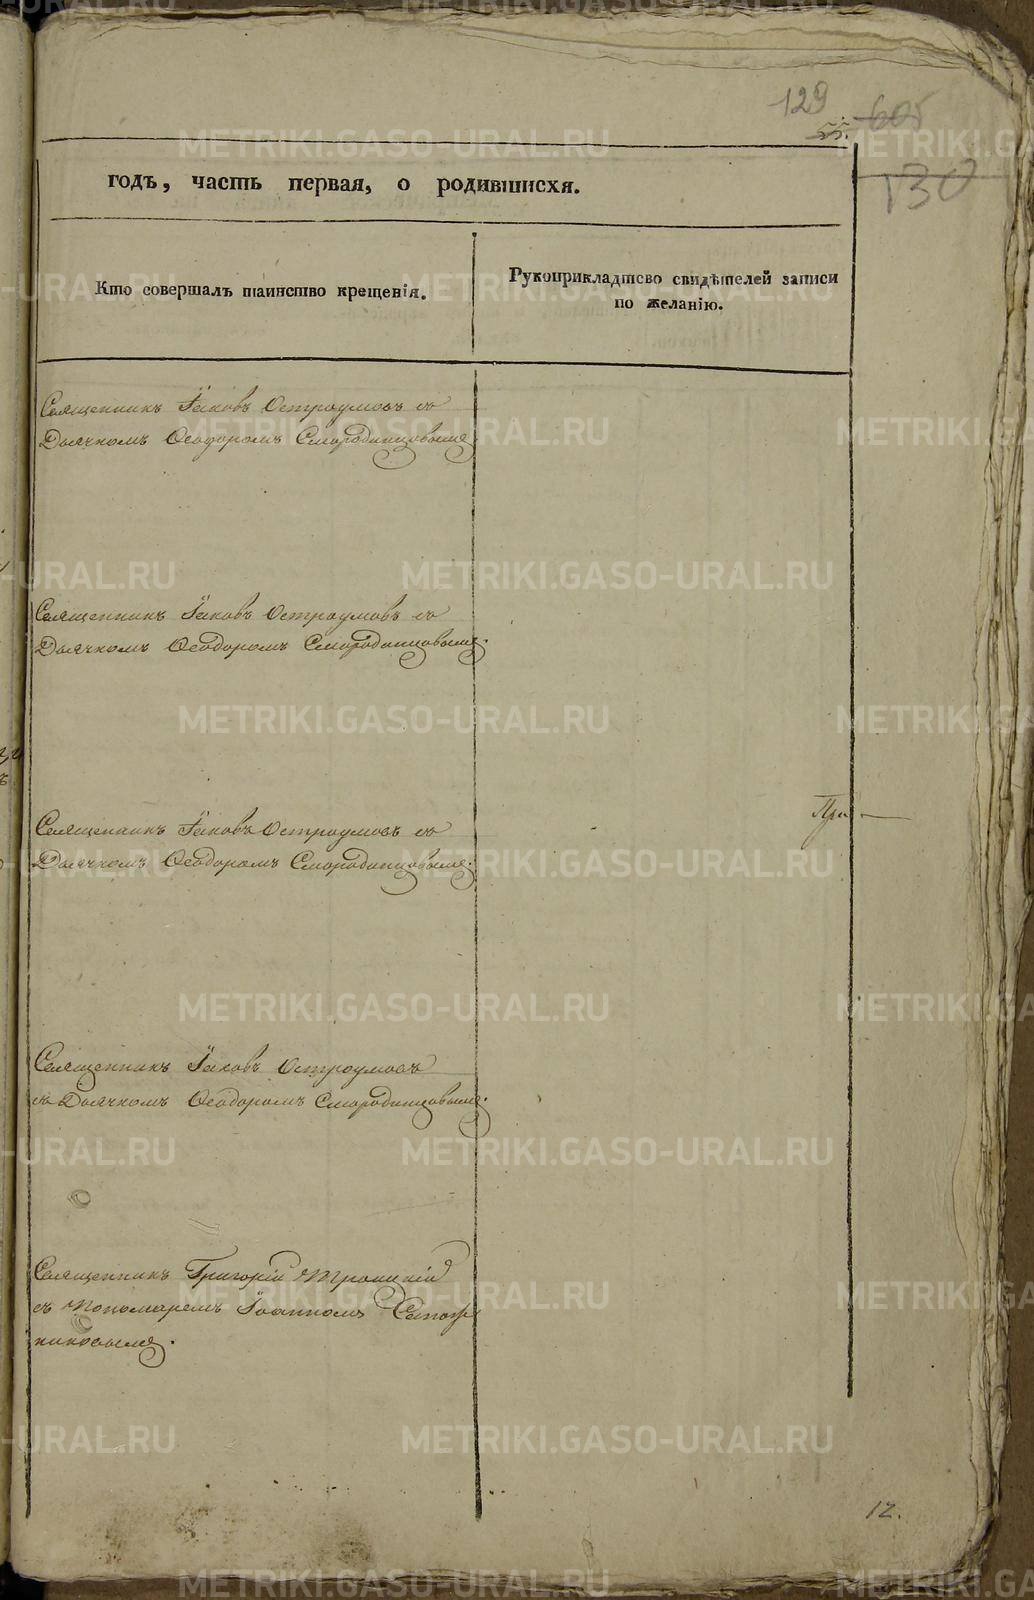 129
55.
605
130
годъ, часть первая, о родившихся.
Кто совершалъ таинство крещенія.
Рукоприкладтсво свидѣтелей записи
по желанію.
Священникъ Іаковъ Остроумовъ съ
Дьячкомъ Ѳеодоромъ Смородинцовымъ
Священникъ Іаковъ Остроумовъ съ
Дьячкомъ Ѳеодоромъ Смородинцовымъ.
Священникъ Іаковъ Остроумовъ съ
Дьячкомъ Ѳеодоромъ Смородинцовымъ.
Священникъ Іаковъ Остроумовъ
съ Дьячкомъ Ѳеодоромъ Смородинцовымъ.
Священникъ Григорій Троицкій
съ Пономаремъ Іоанномъ Сапож
никовымъ.
12.
METRIKI.GASO-URAL.RU